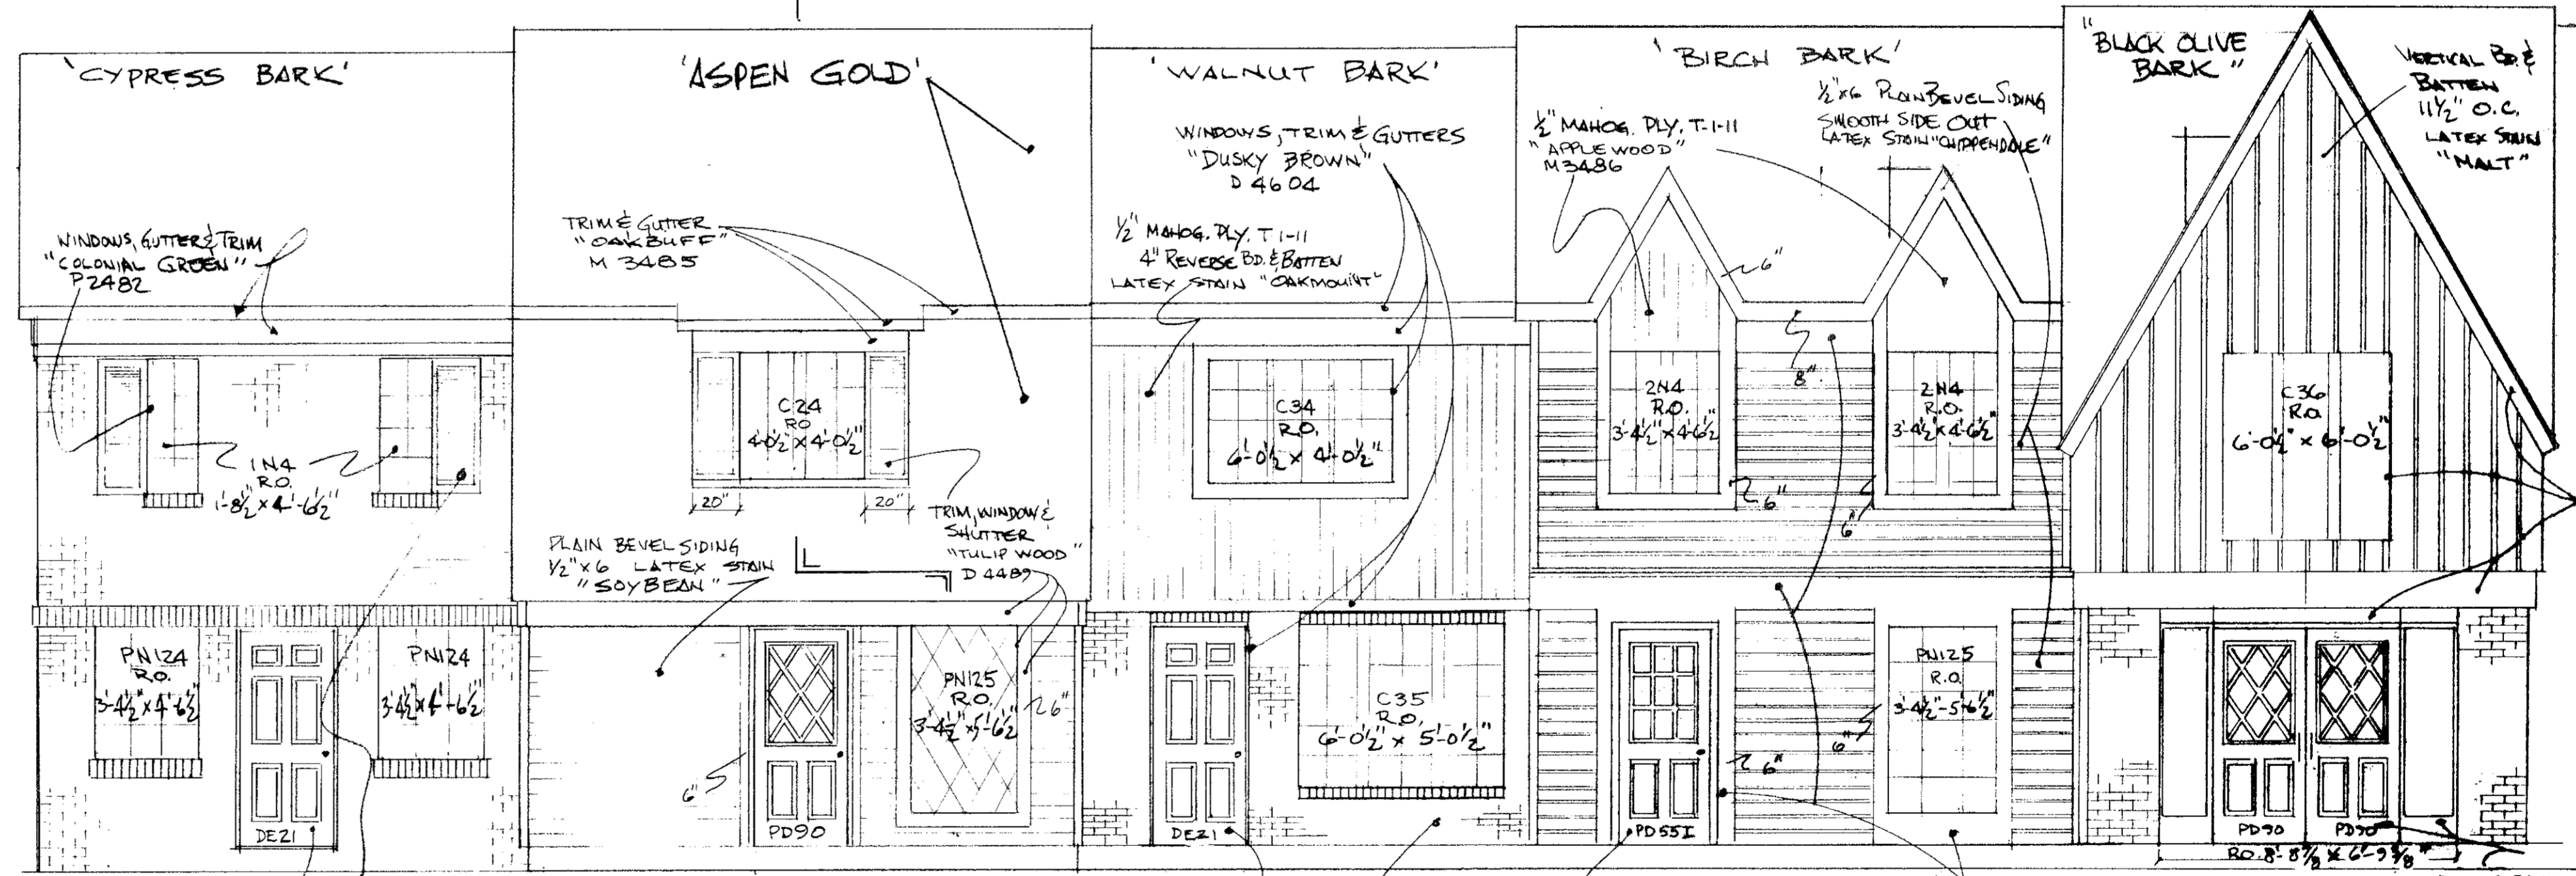 'CYPRESS BARK'
WINDOWS, GUTTER & TRIM
"COLONIAL GREEN"
P2482
1N4
R.O.
1'-8½" x 4'-6½"
PN124
R.O.
3'-4½" x 4'-6½"
DE21
PN124
3'-4½" x 4'-6½"
'ASPEN GOLD'
TRIM & GUTTER
"OAKBUFF"
M 3485
C24
RO
4'-0½" x 4'-0½"
20"
20"
PLAIN BEVEL SIDING
½" x 6 LATEX STAIN
"SOYBEAN"
TRIM, WINDOW &
SHUTTER
"TULIP WOOD"
D 4489
6"
PD90
PN125
R.O.
3'-4½" x 5'-6½"
6"
'WALNUT BARK'
WINDOWS, TRIM & GUTTERS
"DUSKY BROWN"
D 4604
½" MAHOG. PLY. T 1-11
4" REVERSE BD. & BATTEN
LATEX STAIN "OAKMOUNT"
C34
R.O.
6'-0½" x 4'-0½"
DE21
C35
R.O.
6'-0½" x 5'-0½"
'BIRCH BARK'
½" MAHOG. PLY. T-1-11
"APPLEWOOD"
M3486
½" x 6 PLAIN BEVEL SIDING
SMOOTH SIDE OUT
LATEX STAIN "CHIPPENDALE"
6"
8"
2N4
R.O.
3'-4½" x 4'-6½"
6"
2N4
R.O.
3'-4½" x 4'-6½"
6"
PD55I
6"
PN125
R.O.
3'-4½"-5'-6½"
6"
"BLACK OLIVE
BARK"
VERTICAL BD. &
BATTEN
11½" O.C.
LATEX STAIN
"MALT"
C36
R.O.
6'-0½" x 6'-0½"
PD90
PD90
RO. 8'-8⅞ x 6'-9⅜"